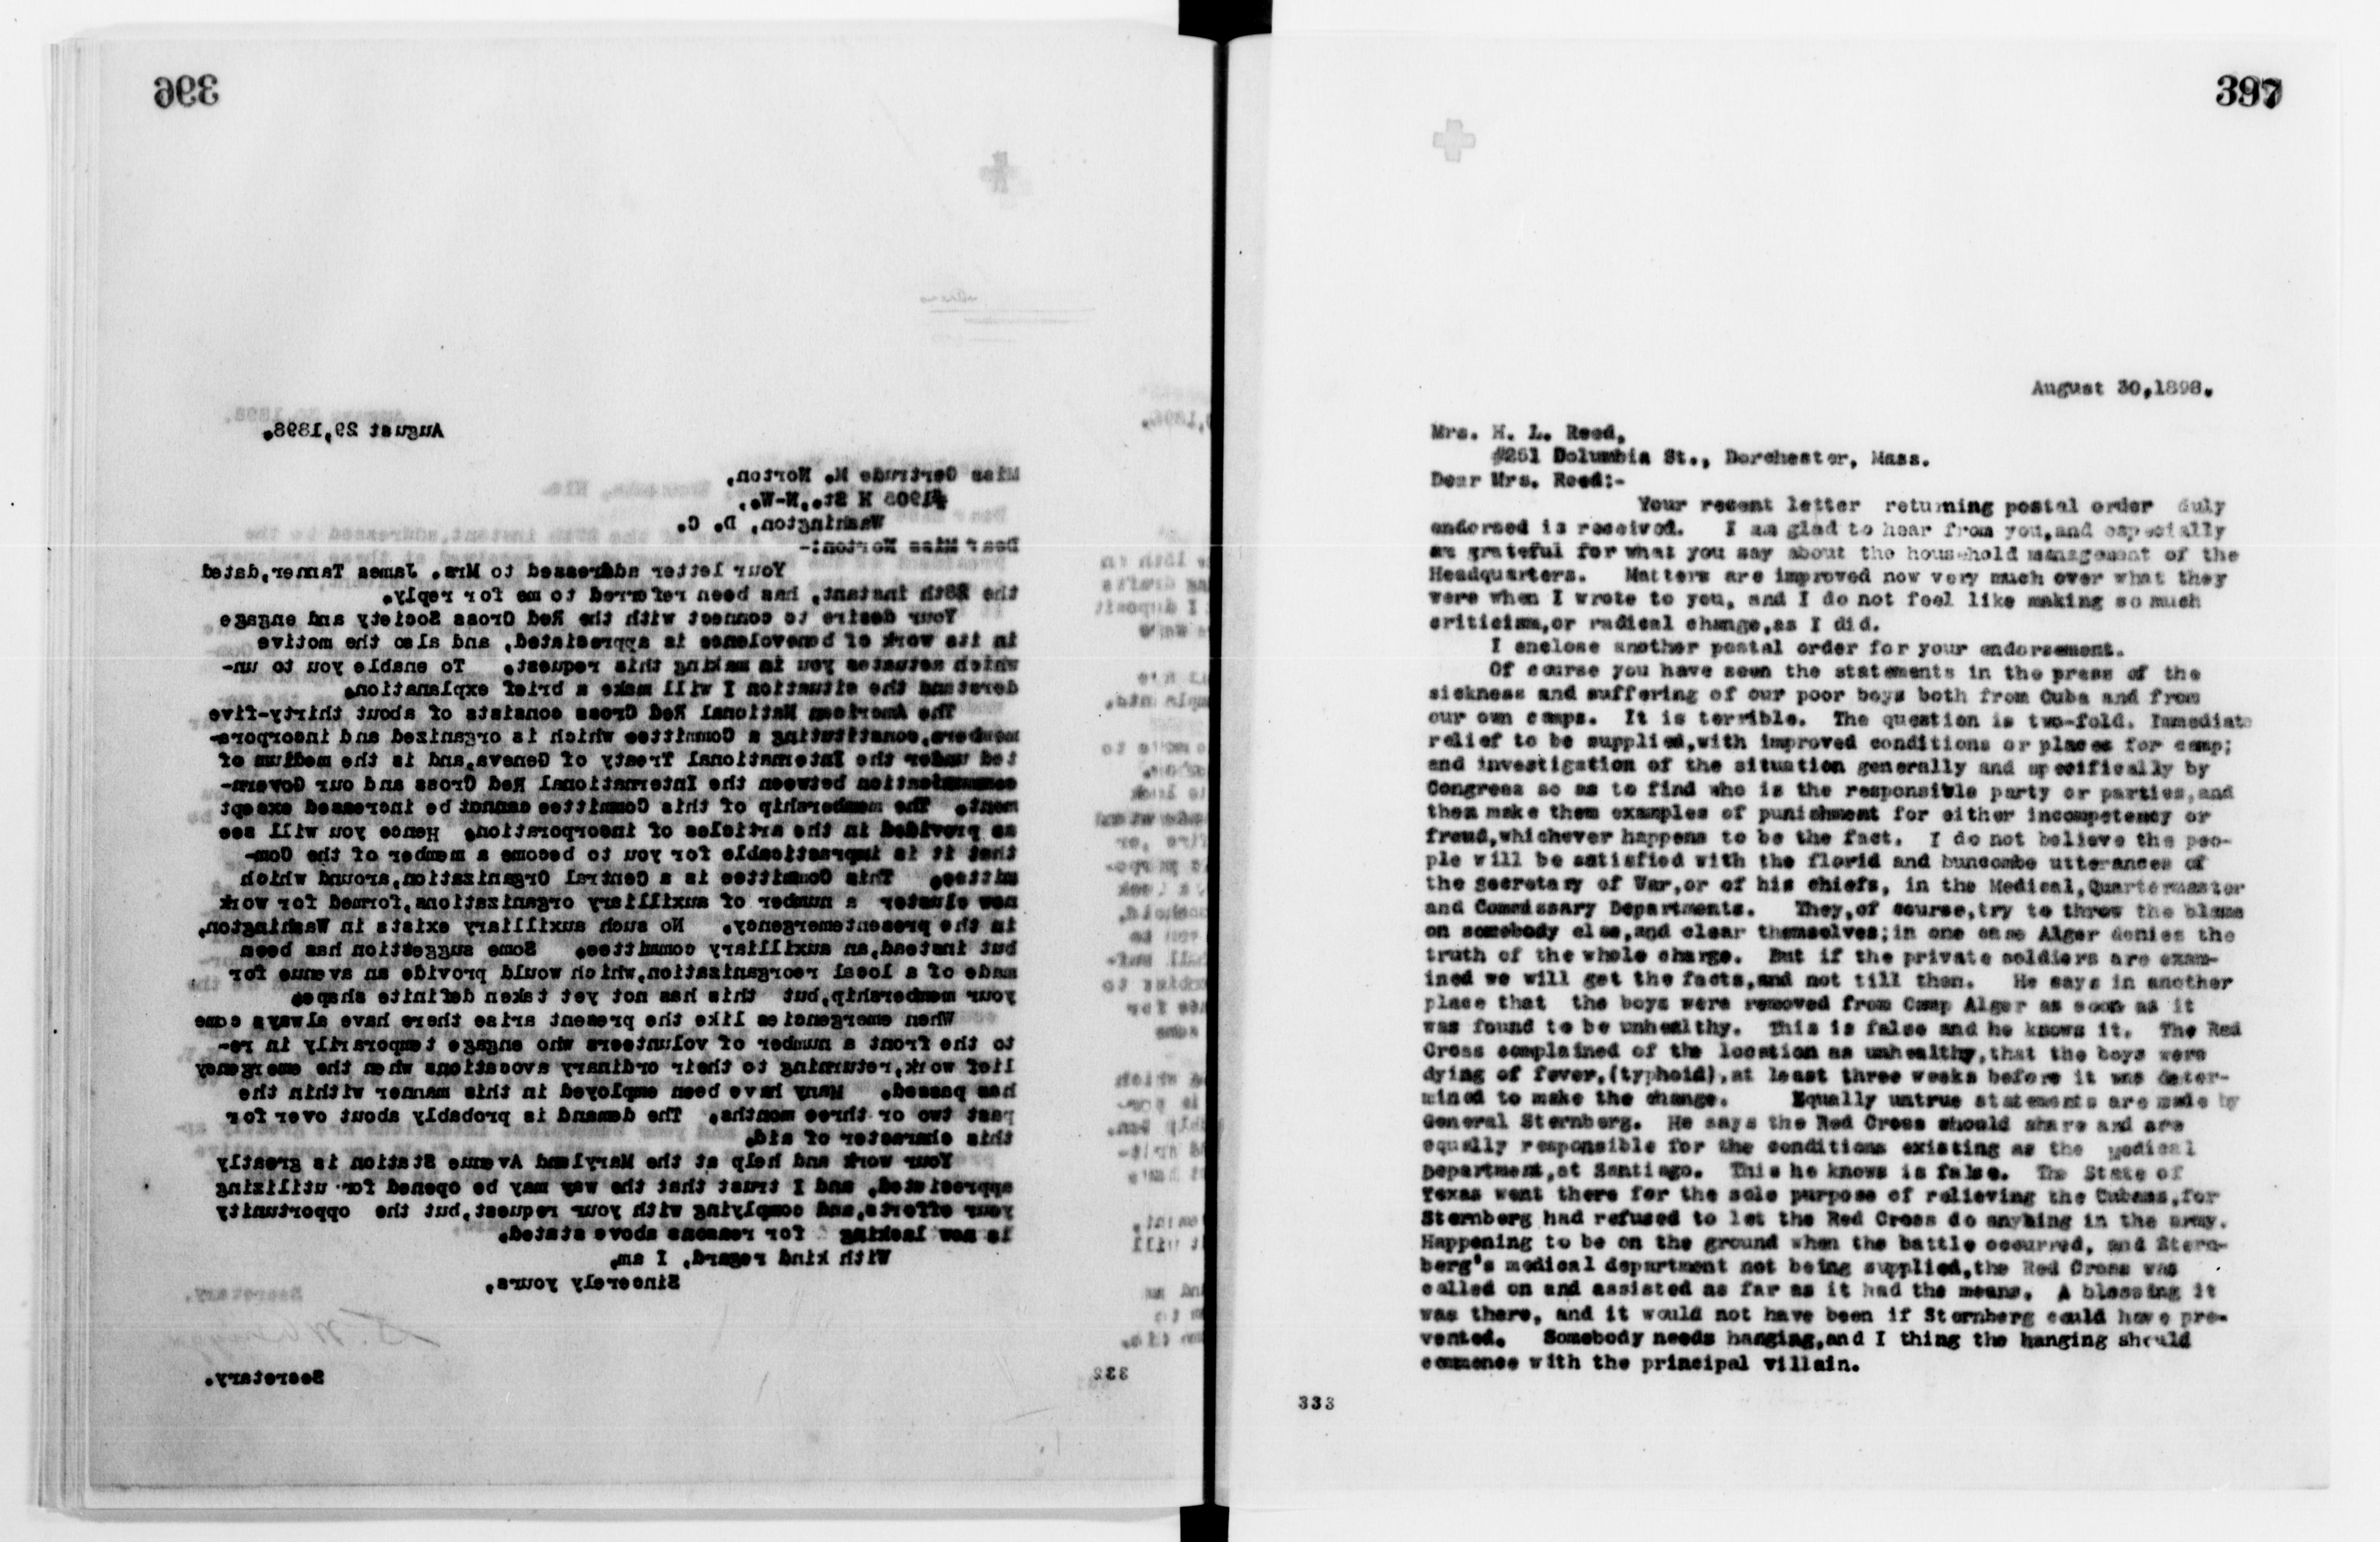 396
August 29,1898.
Miss Gertrude M. Norton,
#1908 H St.,N-W.,
Washington, D. C.
Dear Miss Norton:-
Your letter addressed to Mrs. James Tanner,dated
the 28th instant, has been referred to me for reply.
Your desire to connect with the Red Cross Society and engage
in its work of benevolence is appreciated, and also the motive
which actuates you in making this request. To enable you to un-
derstand the situation I will make a brief explanation.
The American National Red Cross consists of about thirty-five
members,constituting a Committee which is organized and incorpora-
ted under the International Treaty of Geneva,and is the medium of
communication between the International Red Cross and our Govern-
ment. The membership of this Committee cannot be increased except
as provided in the articles of incorporation. Hence you will see
that it is impracticable for you to become a member of the Com-
mittee. This Committee is a Central Organization,around which
now cluster a number of auxilliary organizations,formed for work
in the presentemergency. No such auxilliary exists in Washington,
but instead,an auxilliary committee. Some suggestion has been
made of a local reorganization,which would provide an avenue for
your membership,but this has not yet taken definite shape.
When emergencies like the present arise there have always come
to the front a number of volunteers who engage temporarily in re-
lief work,returning to their ordinary avocations when the emergency
has passed. Many have been employed in this manner within the
past two or three months. The demand is probably about over for
this character of aid.
Your work and help at the Maryland Avenue Station is greatly
appreciated, and I trust that the way may be opened for utilizing
your efforts,and complying with your request,but the opportunity
is now lacking for reasons above stated.
With kind regard, I am,
Sincerely yours,
Secretary.
332
397
August 30,1898.
Mrs. H. L. Reed,
#251 Dolumbia St., Dorchester, Mass.
Dear Mrs. Reed:-
Your recent letter returning postal order duly
endorsed is received. I am glad to hear from you,and especially
am grateful for what you say about the household management of the
Headquarters. Matters are improved now very much over what they
were when I wrote to you, and I do not feel like making so much
criticism,or radical change,as I did.
I enclose another postal order for your endorsement.
Of course you have seen the statements in the press of the
sickness and suffering of our poor boys both from Cuba and from
our own camps. It is terrible. The question is two-fold. Immediate
relief to be supplied,with improved conditions or places for camp;
and investigation of the situation generally and specifically by
Congress so as to find who is the responsible party or parties,and
then make them examples of punishment for either incompetency or
fraud,whichever happens to be the fact. I do not believe the peo-
ple will be satisfied with the florid and buncombe utterances of
the Secretary of War,or of his chiefs, in the Medical,Quartermaster
and Commissary Departments. They,of course,try to throw the blame
on somebody else,and clear themselves;in one case Alger denies the
truth of the whole charge. But if the private soldiers are exam-
ined we will get the facts,and not till then. He says in another
place that the boys were removed from Camp Alger as soon as it
was found to be unhealthy. This is false and he knows it. The Red
Cross complained of the location as unhealthy,that the boys were
dying of fever,(typhoid),at least three weeks before it was deter-
mined to make the change. Equally untrue statements are made by
General Sternberg. He says the Red Cross should share and are
equally responsible for the conditions existing as the Medical
Department,at Santiago. This he knows is false. The State of
Texas went there for the sole purpose of relieving the Cubans,for
Sternberg had refused to let the Red Cross do anyhing in the army.
Happening to be on the ground when the battle occurred, and Stern-
berg's medical department not being supplied,the Red Cross was
called on and assisted as far as it had the means. A blessing it
was there, and it would not have been if Sternberg could have pre-
vented. Somebody needs hanging,and I thing the hanging should
commence with the principal villain.
333